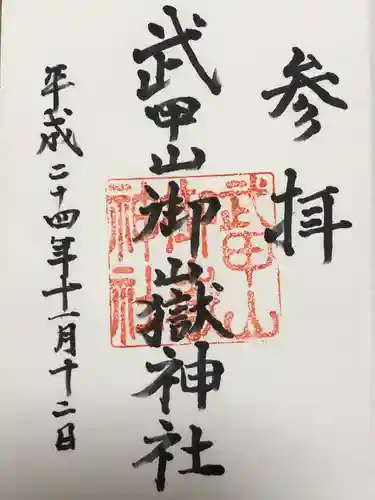 参拝
武甲山御嶽神社
平成二十四年十一月十二日
武甲山
御嶽
神社